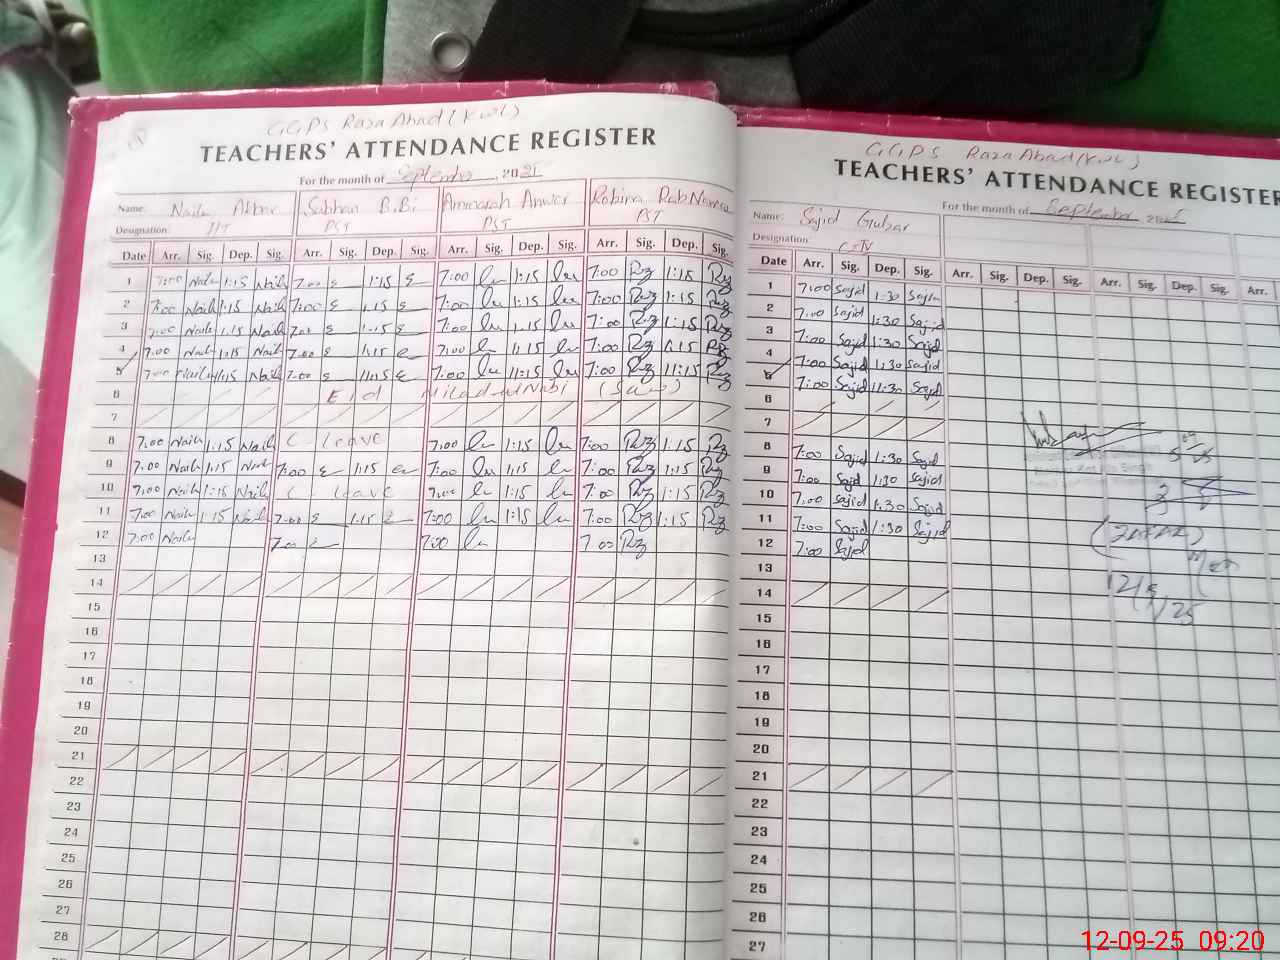 GGPS Raza Abad (KWL)
TEACHERS' ATTENDANCE REGISTER
For the month of September, 2025
Name: Naila Akbar Subhan Bibi Ammarah Anwar Robina Rab Nawaz
Designation: PST PST PST
Date Arr. Sig. Dep. Sig. Arr. Sig. Dep. Sig. Arr. Sig. Dep. Sig. Arr. Sig. Dep. Sig.
1 7:00 Naila 1:15 Naila 7:00 1:15 7:00 1:15 7:00 Rz 1:15 Rz
2 7:00 Naila 1:15 Naila 7:00 1:15 7:00 1:15 7:00 Rz 1:15 Rz
3 7:00 Naila 1:15 Naila 7:00 1:15 7:00 1:15 7:00 Rz 1:15 Rz
4 7:00 Naila 1:15 Naila 7:00 1:15 7:00 1:15 7:00 Rz 1:15 Rz
5 7:00 Naila 11:15 Naila 7:00 11:15 7:00 11:15 7:00 Rz 11:15 Rz
6 Eid Milad-ul-Nabi (Saw)
7
8 7:00 Naila 1:15 Naila C - leave 7:00 1:15 7:00 Rz 1:15 Rz
9 7:00 Naila 1:15 Naila 7:00 1:15 7:00 1:15 7:00 Rz 1:15 Rz
10 7:00 Naila 1:15 Naila C - leave 7:00 1:15 7:00 Rz 1:15 Rz
11 7:00 Naila 1:15 Naila 7:00 1:15 7:00 1:15 7:00 Rz 1:15 Rz
12 7:00 Naila 7:00 7:00 7:00 Rz
13
14
15
16
17
18
19
20
21
22
23
24
25
26
27
28
GGPS Raza Abad (KWL)
TEACHERS' ATTENDANCE REGISTER
For the month of September 2025
Name: Sajid Gulzar
Designation
Date Arr. Sig. Dep. Sig. Arr. Sig. Dep. Sig. Arr. Sig. Dep. Sig. Arr.
1 7:00 Sajid 1:30 Sajid
2 7:00 Sajid 1:30 Sajid
3 7:00 Sajid 1:30 Sajid
4 7:00 Sajid 1:30 Sajid
5 7:00 Sajid 11:30 Sajid
6
7
8 7:00 Sajid 1:30 Sajid
9 7:00 Sajid 1:30 Sajid
10 7:00 Sajid 1:30 Sajid
11 7:00 Sajid 1:30 Sajid
12 7:00 Sajid
13
14
15
16
17
18
19
20
21
22
23
24
25
26
27
12/9/25
12-09-25 09:20